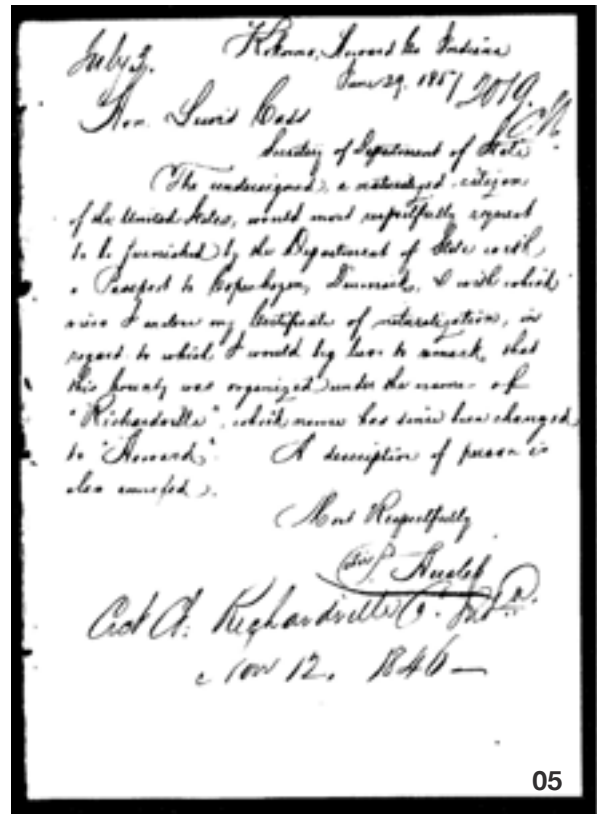 July 2.
Kokomo, Howard Co Indiana
June 29. 1857
2019.
Hon. Lewis Cass
Secretary of Department of State
The undersigned, a naturalized citizen
of the United States, would most respectfully request
to be furnished by the Department of State with
a Passport to Copenhagen, Denmark, & with which
view I enclose my Certificate of naturalization, in
regard to which I would beg leave to remark, that
this County was organized under the name of
"Richardville", which name has since been changed
to "Howard". A description of person is
also annexed.
Most Respectfully
Crct Ct. Richardville Co. Inda.
Nov 12. 1846—
05